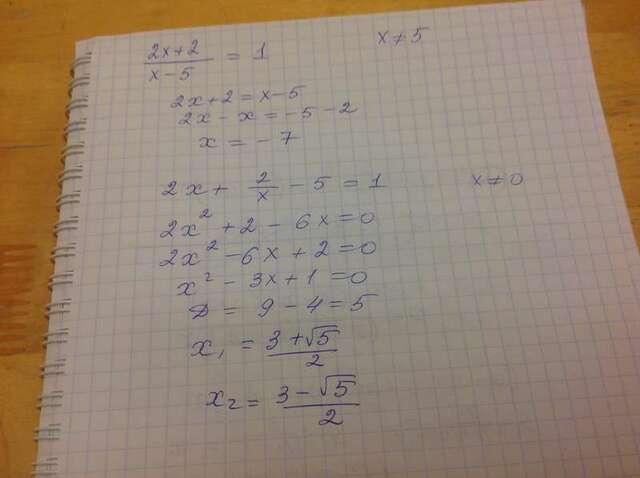 (2x+2)/(x-5) = 1    x≠5
2x+2=x-5
2x-x=-5-2
x=-7
2x+ 2/x -5=1    x≠0
2x²+2-6x=0
2x²-6x+2=0
x²-3x+1=0
D=9-4=5
x₁=(3+√5)/2
x₂=(3-√5)/2